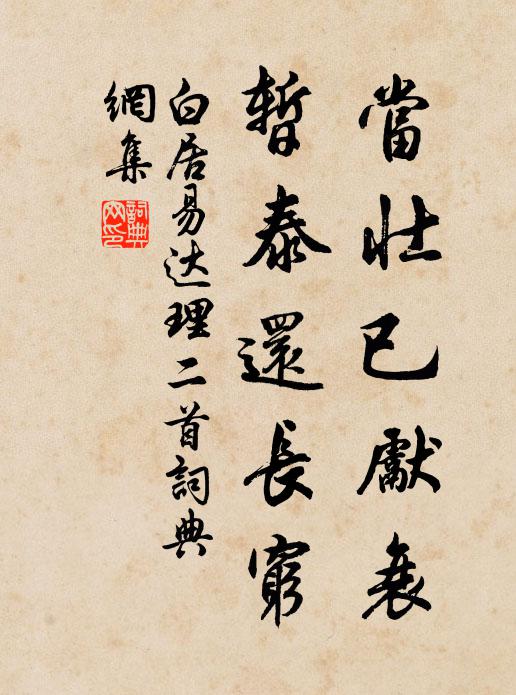 當壯已獻衰
暫泰還長窮
白居易达理二首詞典
網集
詞典
网印